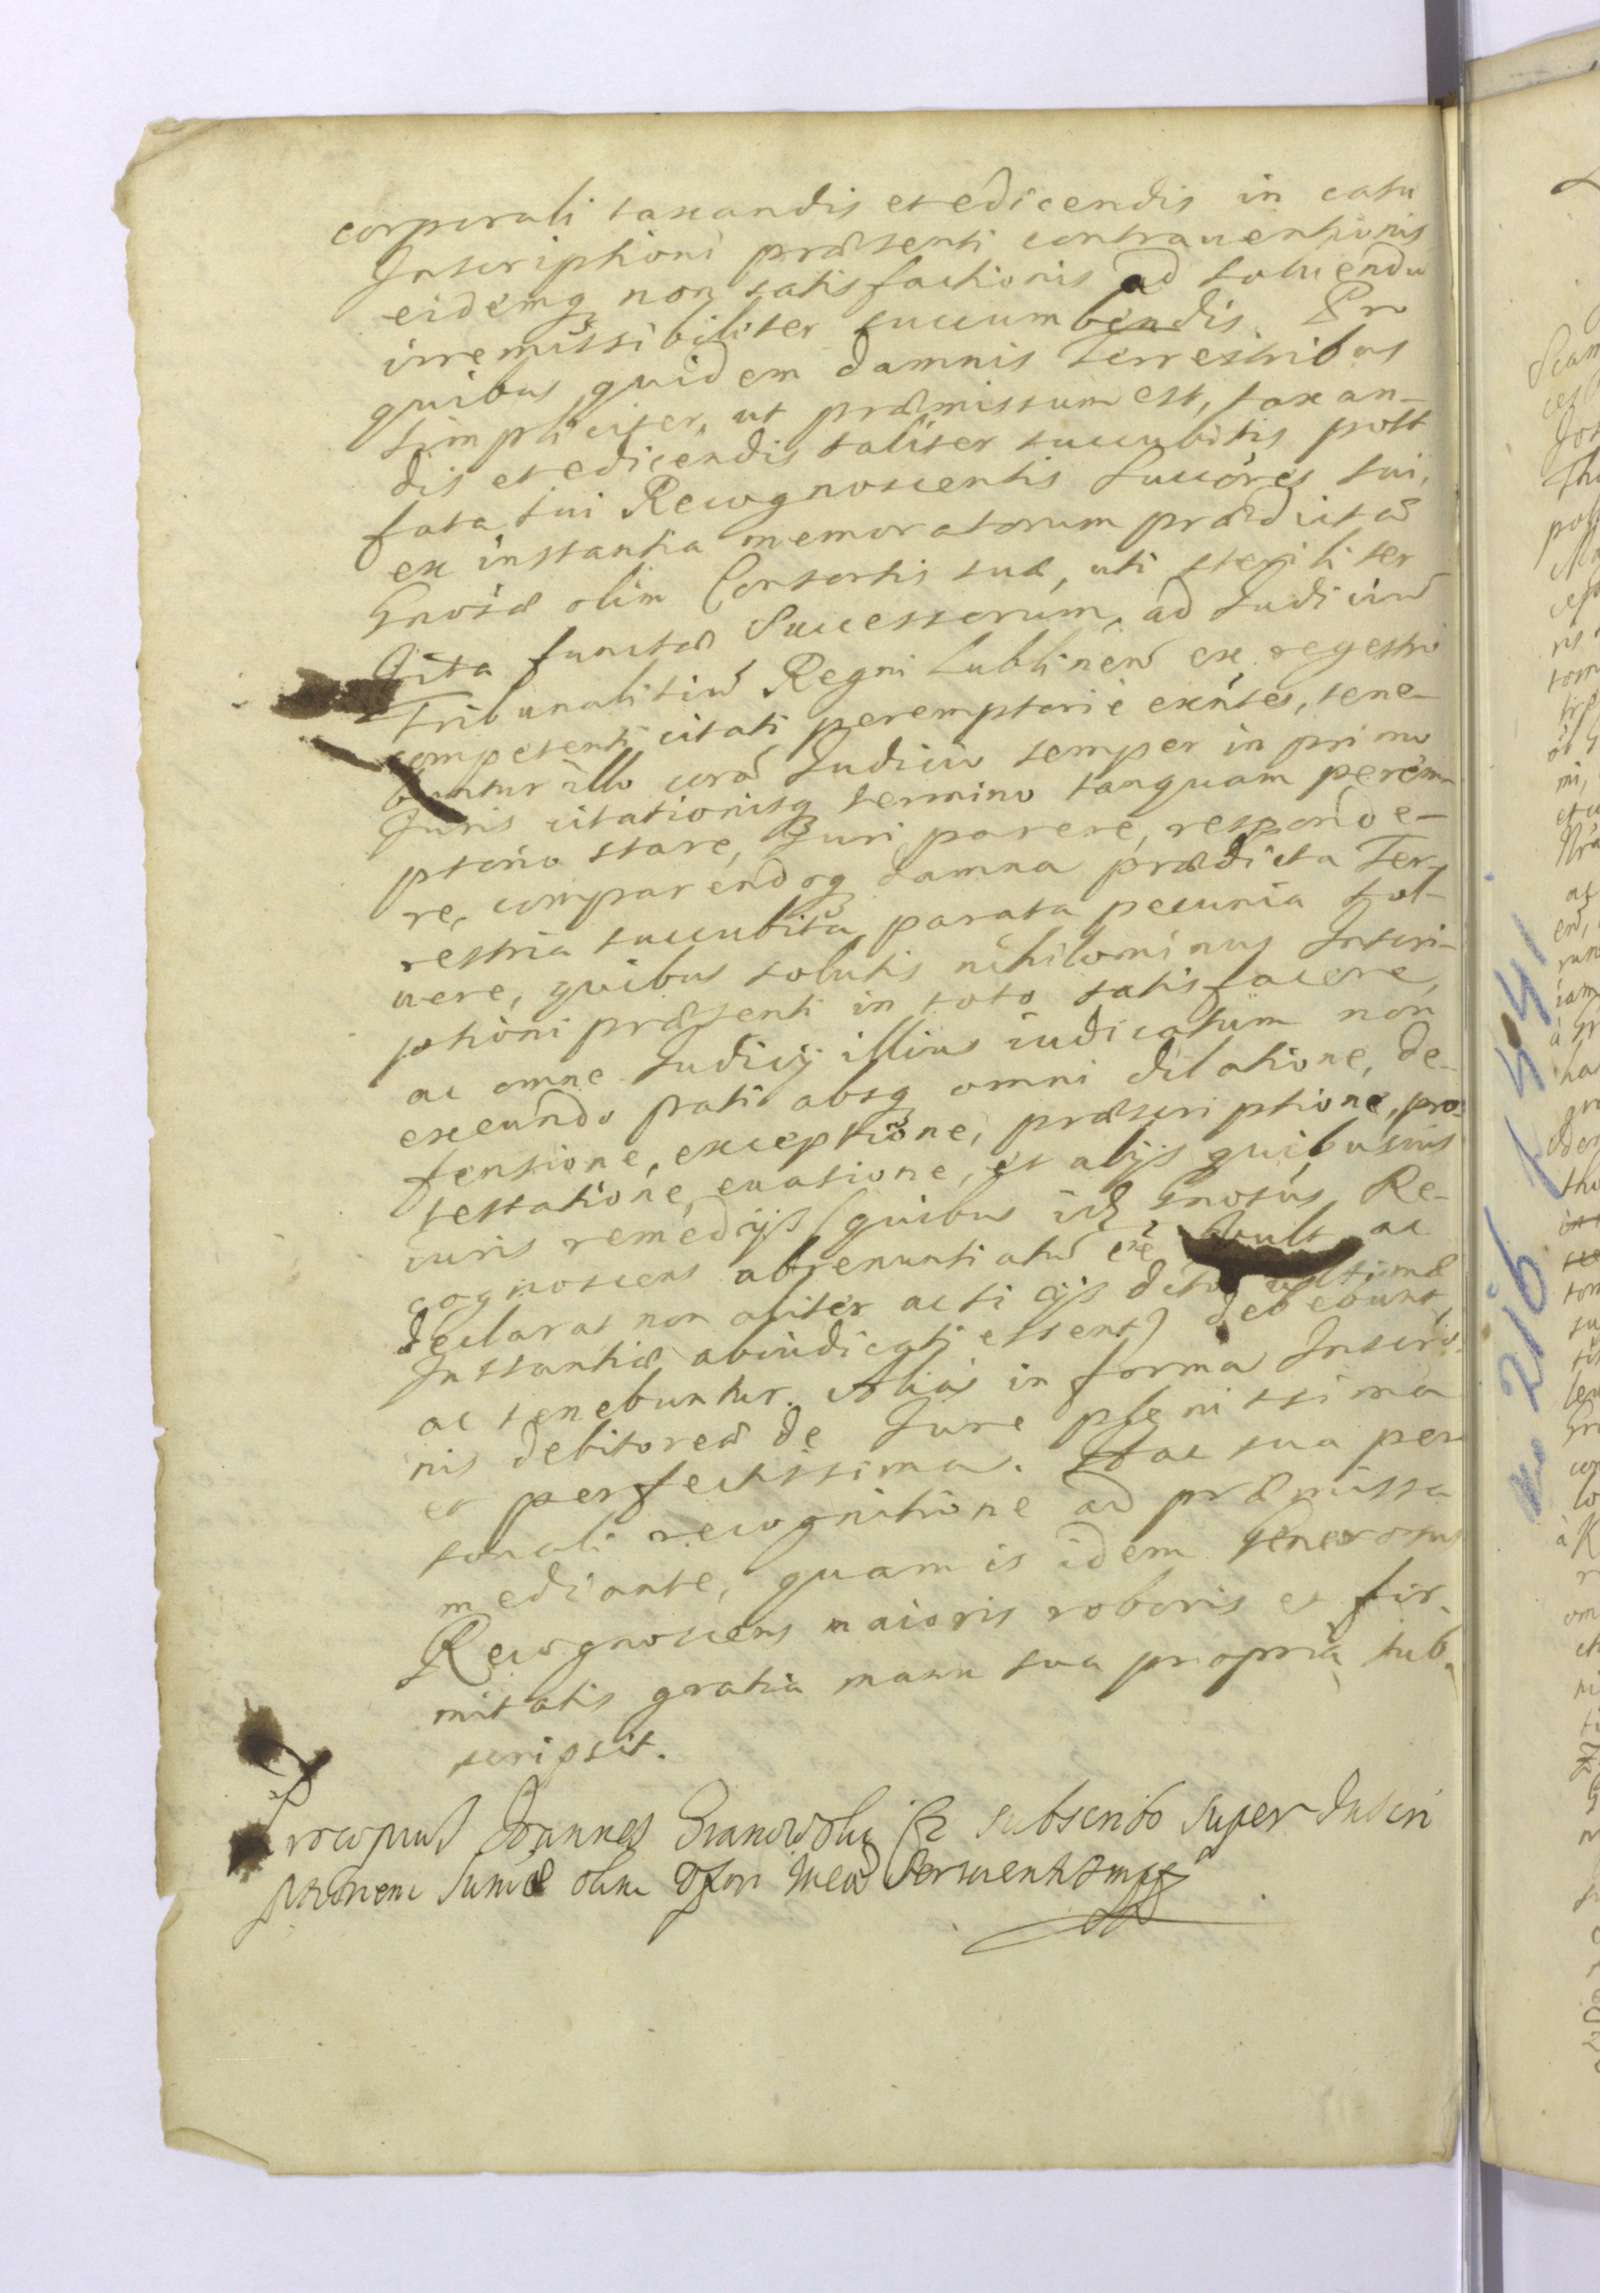 corporali taxandis et edicendis in casu
Inscriptioni præsenti contraventionis
eidemq non satisfactionis ad soluendu
irremissibiliter succumbendis. Pro
quibus quidem damnis Terrestribus
simpliciter, ut præmissum est, taxan-
dis et edicendis taliter succubitis post
fata sui Recognoscentis Succóres sui,
ex instantia memoratorum prædictæ
Gnosæ olim Consortis suæ, uti steriliter
Vita functæ Successorum, ad Judiciũ
Tribunalitiũ Regni Lublineñ ex regestro
competenti citati peremptorie exñtes, tene-
buntur illo corã Judicio semper in primo
Juris citationisq termino tanquam perem-
ptorio stare, Juri parere, responde-
re, comparendoq damna prædicta Ter-
restria succubita, parata pecunia sol-
uere, quibus solutis nihilominus Inscri-
ptioni præsenti in toto satisfacere,
ac omne Judicij illius iudicatum non
exeundo prati absq omni dilatione, de-
fensione, exceptione, præscriptione, pro-
testatione, euasione, et alijs quibusuis
iuris remedijs (quibus idẽ Gnosus Re-
cognoscens abrenuntiatũ eẽ vult ac
declarat non aliter ac si ijs ultimæ
Instantiæ abiudicati essent) debebunt
ac tenebuntur. Alias in forma Inscrio-
nis debitoreæ de Jure plenissima
et perfectissima. Hac sua per-
sonali recognitione ad præmissa
mediante, quam is idem Generosus
Recognoscens maioris roboris et fir-
mitatis gratia manu sua propria sub-
scripsit.
Procopius Joannes Granowski subscribo super Inscri
ptionem Sumæ olim Uxori meæ seruient mpp
No 216 1541